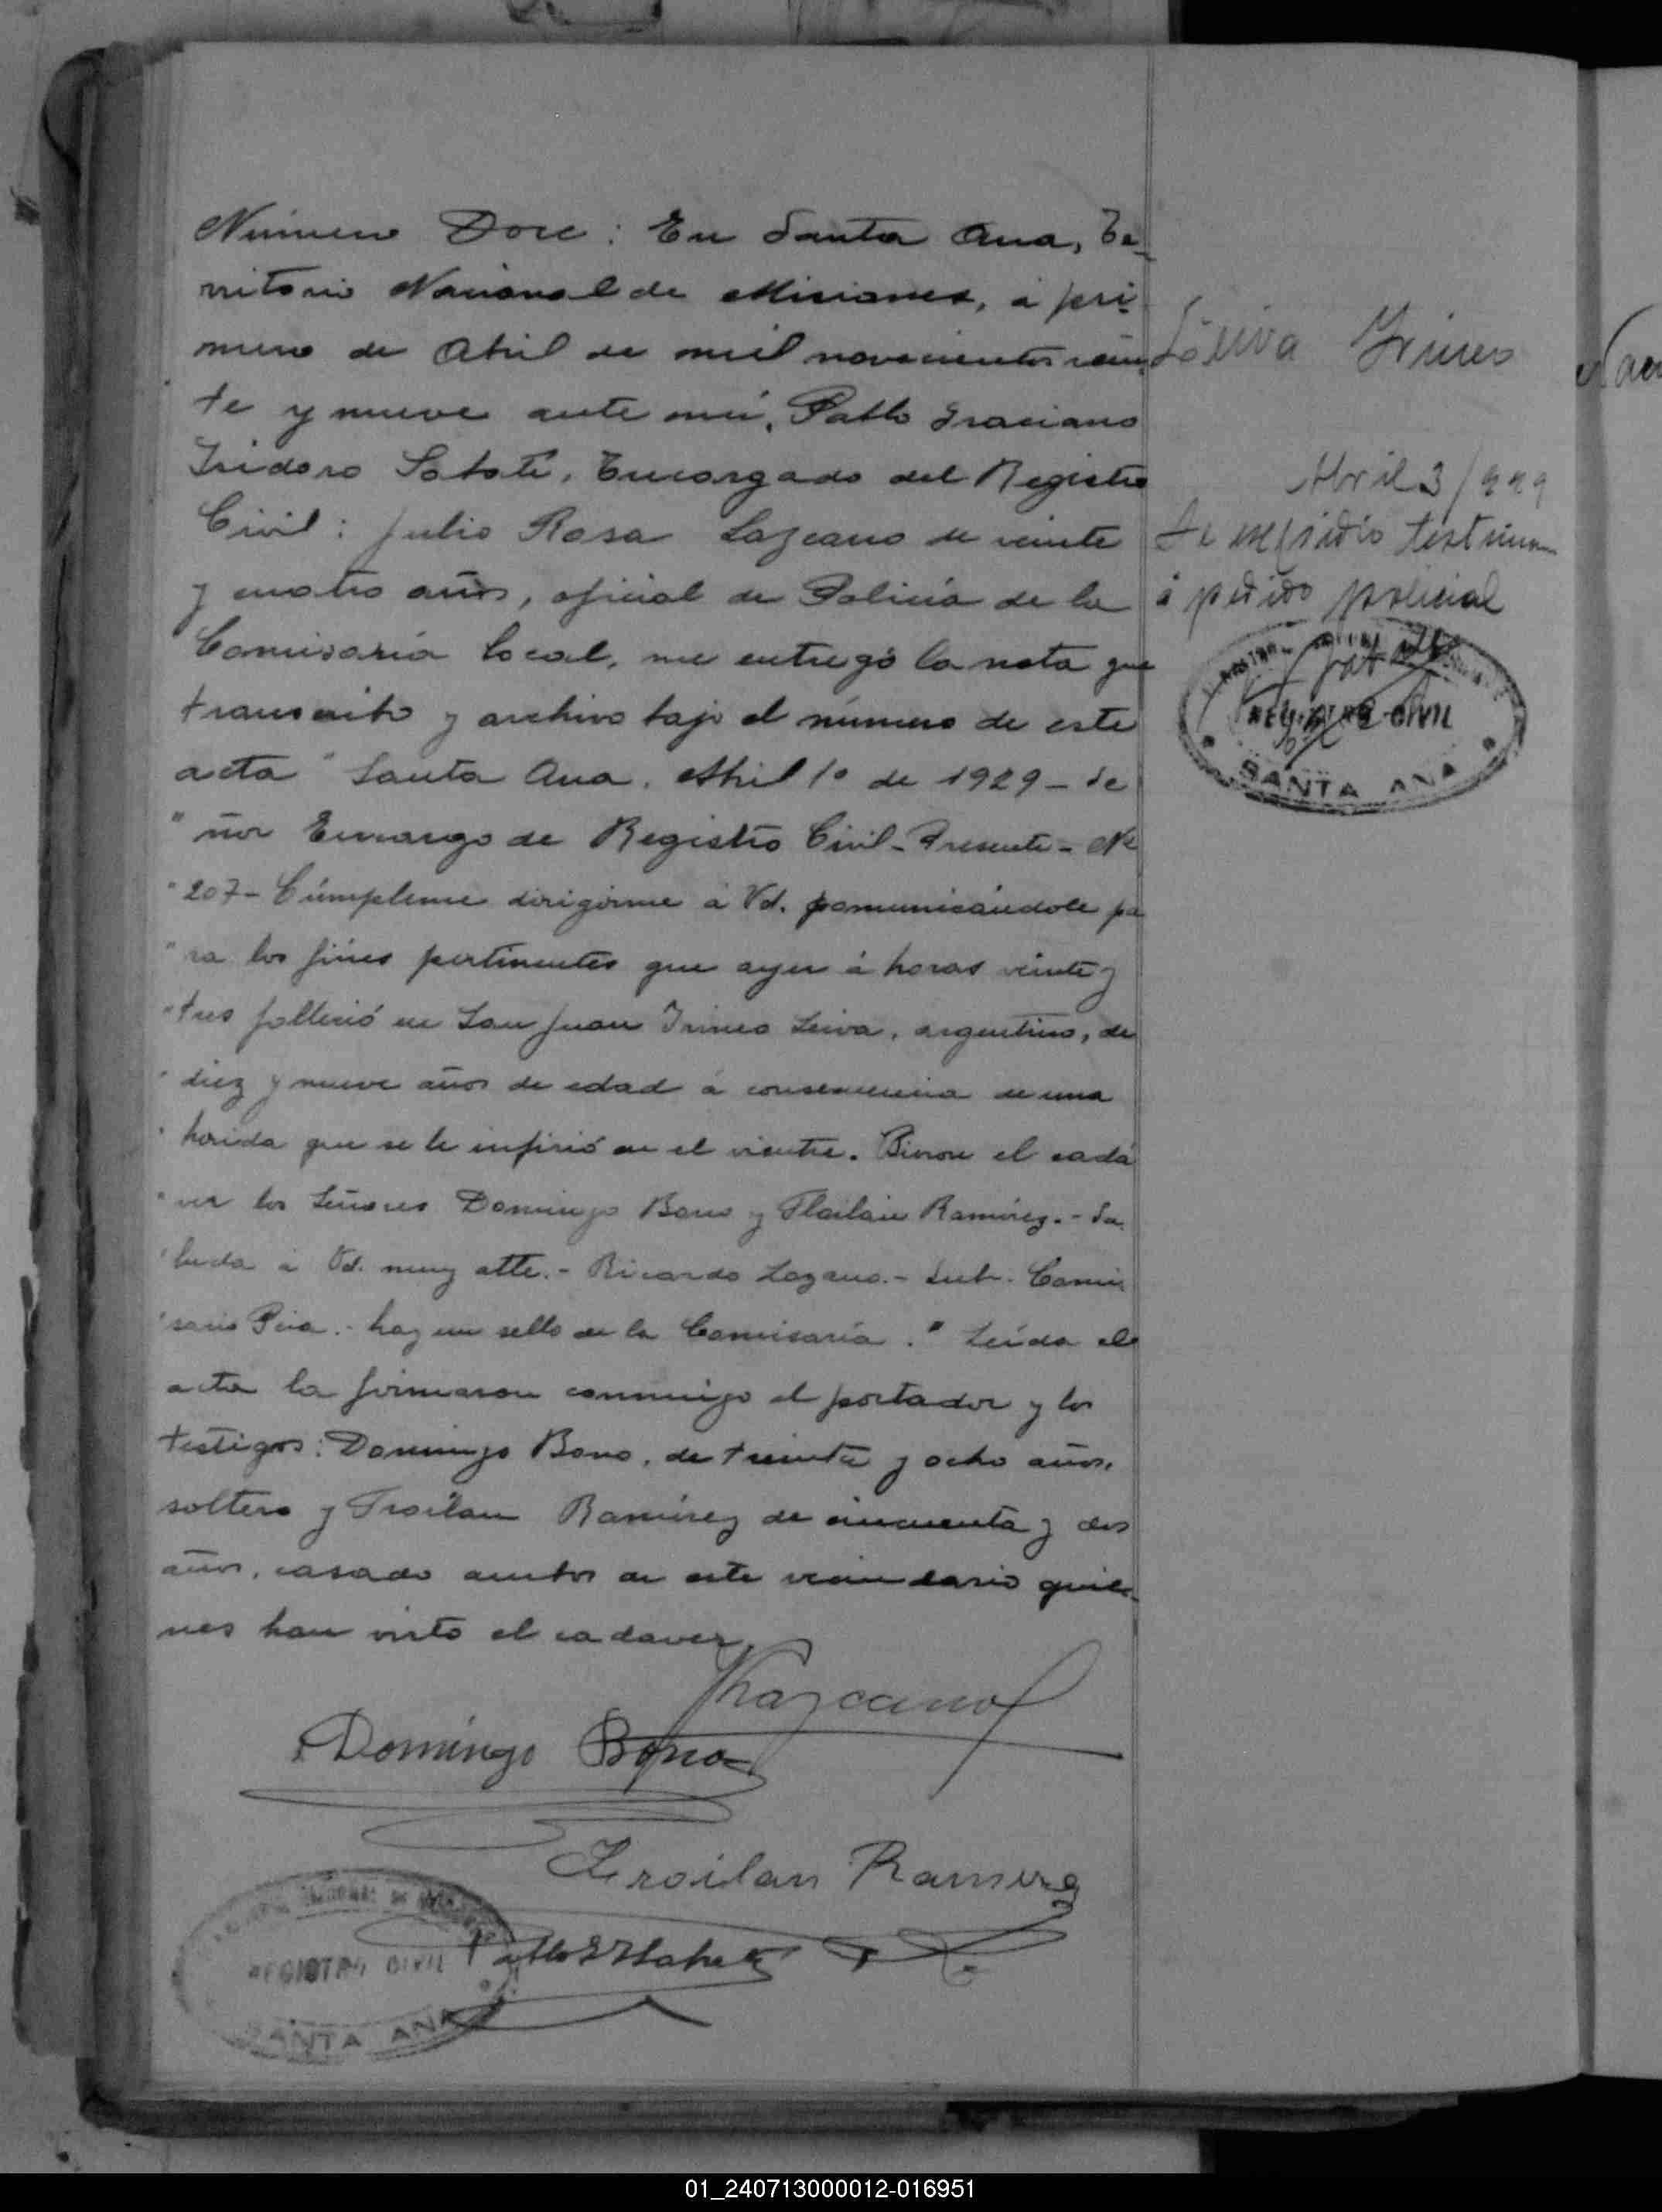 Número Doce: En Santa Ana, Te-
rritorio Nacional de Misiones, á pri-
mero de Abril de mil novecientos vein-
te y nueve ante mí, Pablo Graciano
Isidoro Sabaté, Encargado del Registro
Civil: Julio Rosa Lazcano de veinte
y cuatro años, oficial de Policía de la
Comisaría local, me entregó la nota que
transcribo y archivo bajo el número de este
acta "Santa Ana, Abril 1º de 1929 - Se
" ñor Encargo de Registro Civil - Presente - Nº
" 207 - Cúmpleme dirigirme á Vd. comunicándole pa
" ra los fines pertinentes que ayer á horas veinte y
" tres falleció en San Juan Irineo Leiva, argentino, de
" diez y nueve años de edad á consecuencia de una
" herida que se le infirió en el vientre. Vieron el cadá
" ver los Señores Domingo Bono y Froilan Ramírez. - Sa
" luda á Vd. muy atte. - Ricardo Lozano. - Sub. Comi
" sario Pcia. - hay un sello de la Comisaría." Leída el
acta la firmaron conmigo el portador y los
testigos: Domingo Bono, de treinta y ocho años,
soltero y Froilan Ramírez de cincuenta y dos
años, casado ambos de este vecindario quie-
nes han visto el cadaver
Lazcano
Domingo Bono
Froilan Ramirez
REGISTRO CIVIL
SANTA ANA
Leiva Irineo
Abril 3/929
Se expidio testimon
á pedido policial
REGISTRO CIVIL
SANTA ANA
01_240713000012-016951